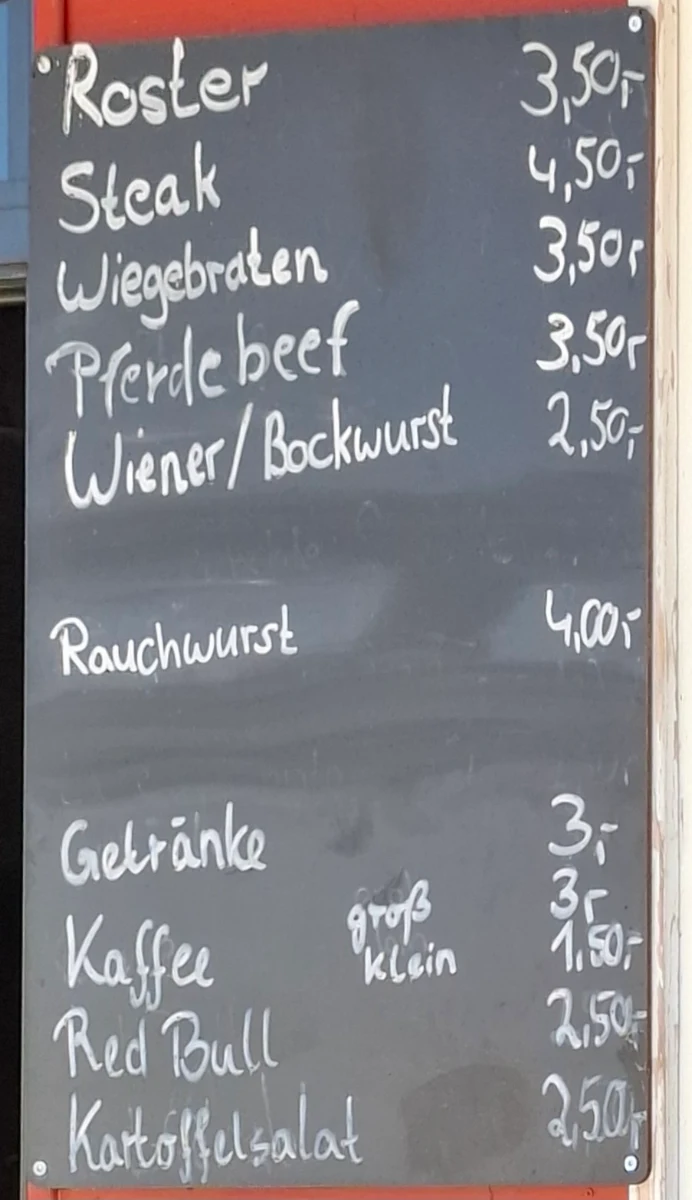 Roster 3,50,-
Steak 4,50,-
Wiegebraten 3,50,-
Pferdebeef 3,50,-
Wiener/Bockwurst 2,50,-
Rauchwurst 4,00,-
Getränke 3,-
Kaffee groß 3,-
klein 1.50,-
Red Bull 2,50,-
Kartoffelsalat 2,50,-